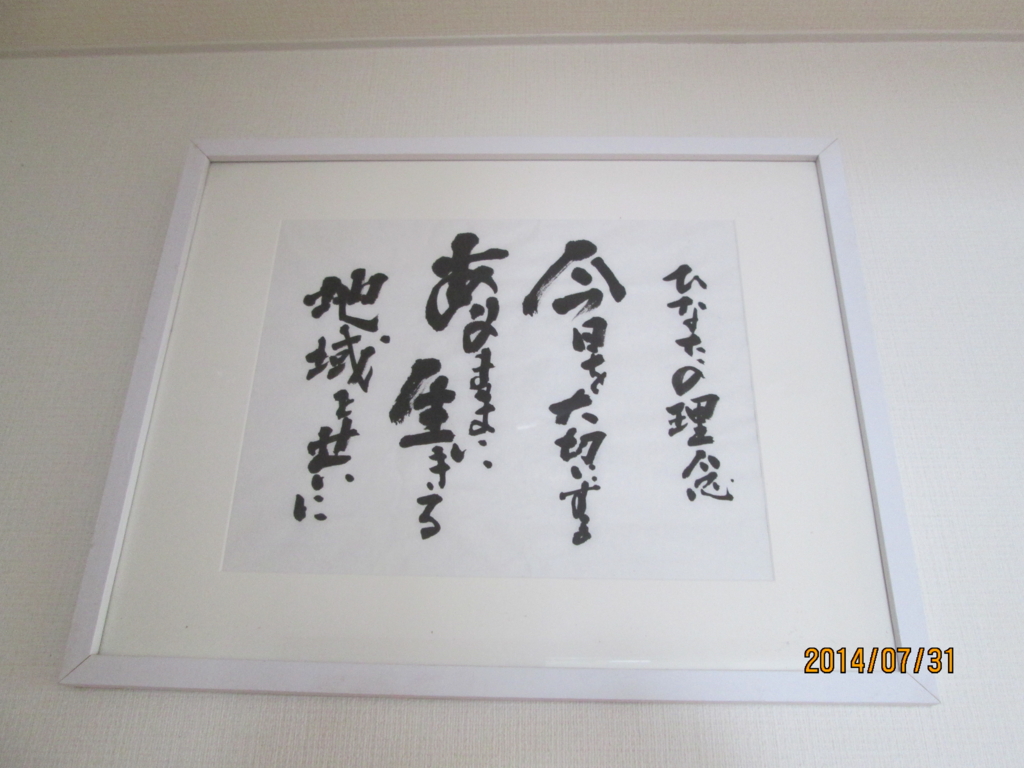 ひなたの理念
今日を大切にする
ありのままに
生きる
地域と共に
2014/07/31